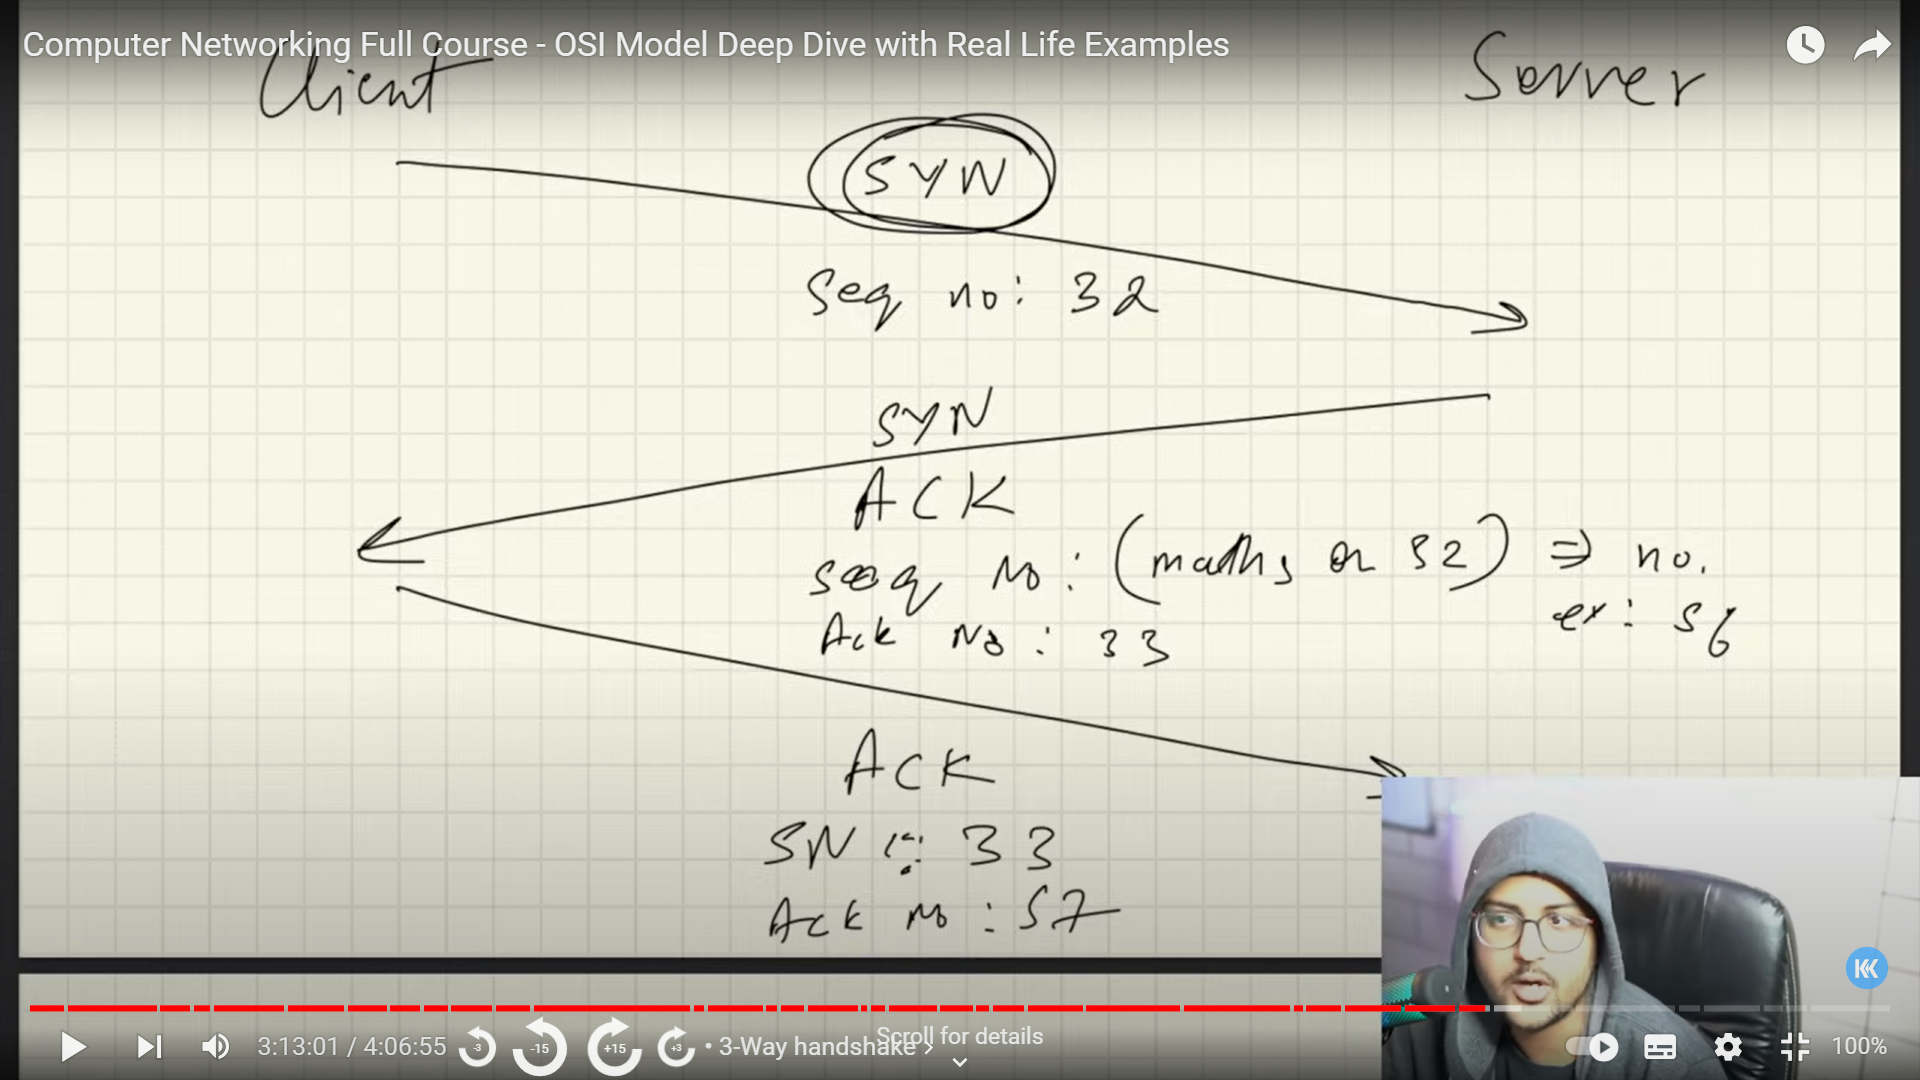 Computer Networking Full Course - OSI Model Deep Dive with Real Life Examples
Client
Server
SYN
Seq no: 32
SYN
ACK
seq No: (maths on 32) ⇒ no.
ex: 56
Ack No: 33
ACK
SN : 33
Ack No: 57
3:13:01 / 4:06:55
-3
-15
+15
+3
• 3-Way handshake ›
Scroll for details
100%